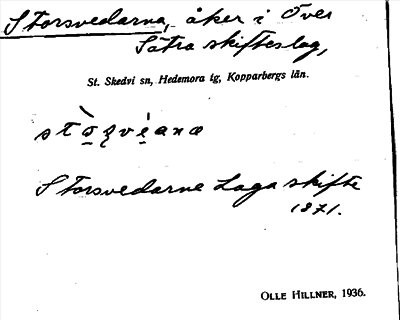 Storsvedarna, åker i Över
Sätra skifteslag,
St. Skedvi sn, Hedemora tg, Kopparbergs län.
Storsvedarne Laga skifte
1871.
OLLE HILLNER, 1936.